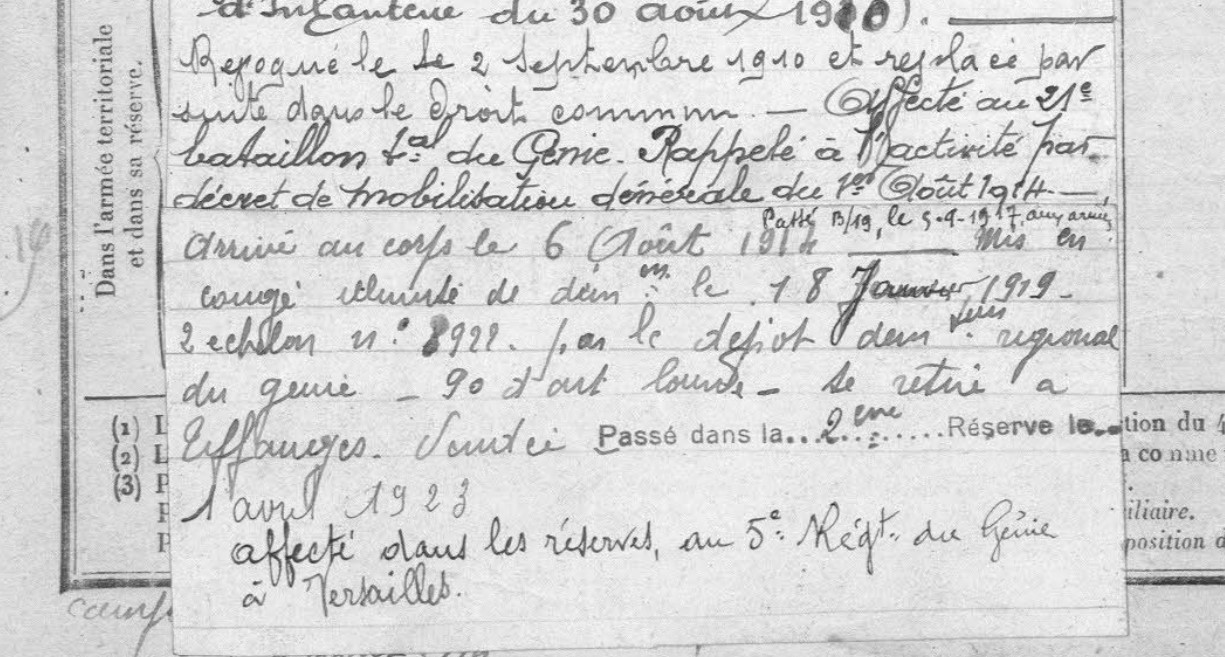 d'Infanterie du 30 août 1910).
Dans l'armée territoriale
et dans sa réserve.
le 2 Septembre 1910 et replacé par
suite dans le droit commun. — Affecté au 21e
bataillon tal du Génie. Rappelé à l'activité par
décret de mobilisation générale du 1er Août 1914 —
Passé B/19, le 5-9-1917, aux armées
Arrivé au corps le 6 Août 1914 — Mis en
congé illimité de dém on le 18 Janvier 1919 -
2 echelon n° 8922. par le depot dem regional
du genie - 90 d'art lourde - Se retire a
Vendée Passé dans la... 2eme ......Réserve le..
1 avril 1923
affecté dans les réserves, au 5e Régt. du Génie
à Versailles.
(1) L
(2) L
(3) P
P
tion du 4
a comme
iliaire.
position d